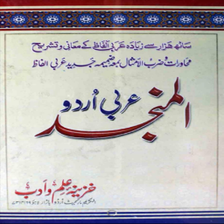 ساٹھ ہزار سے زیادہ عربی الفاظ کے معانی و تشریح
محاورات و ضرب الامثال بمعہ ضمیمہ جدید عربی الفاظ
المنجد
عربی اردو
خزینہ علم و ادب